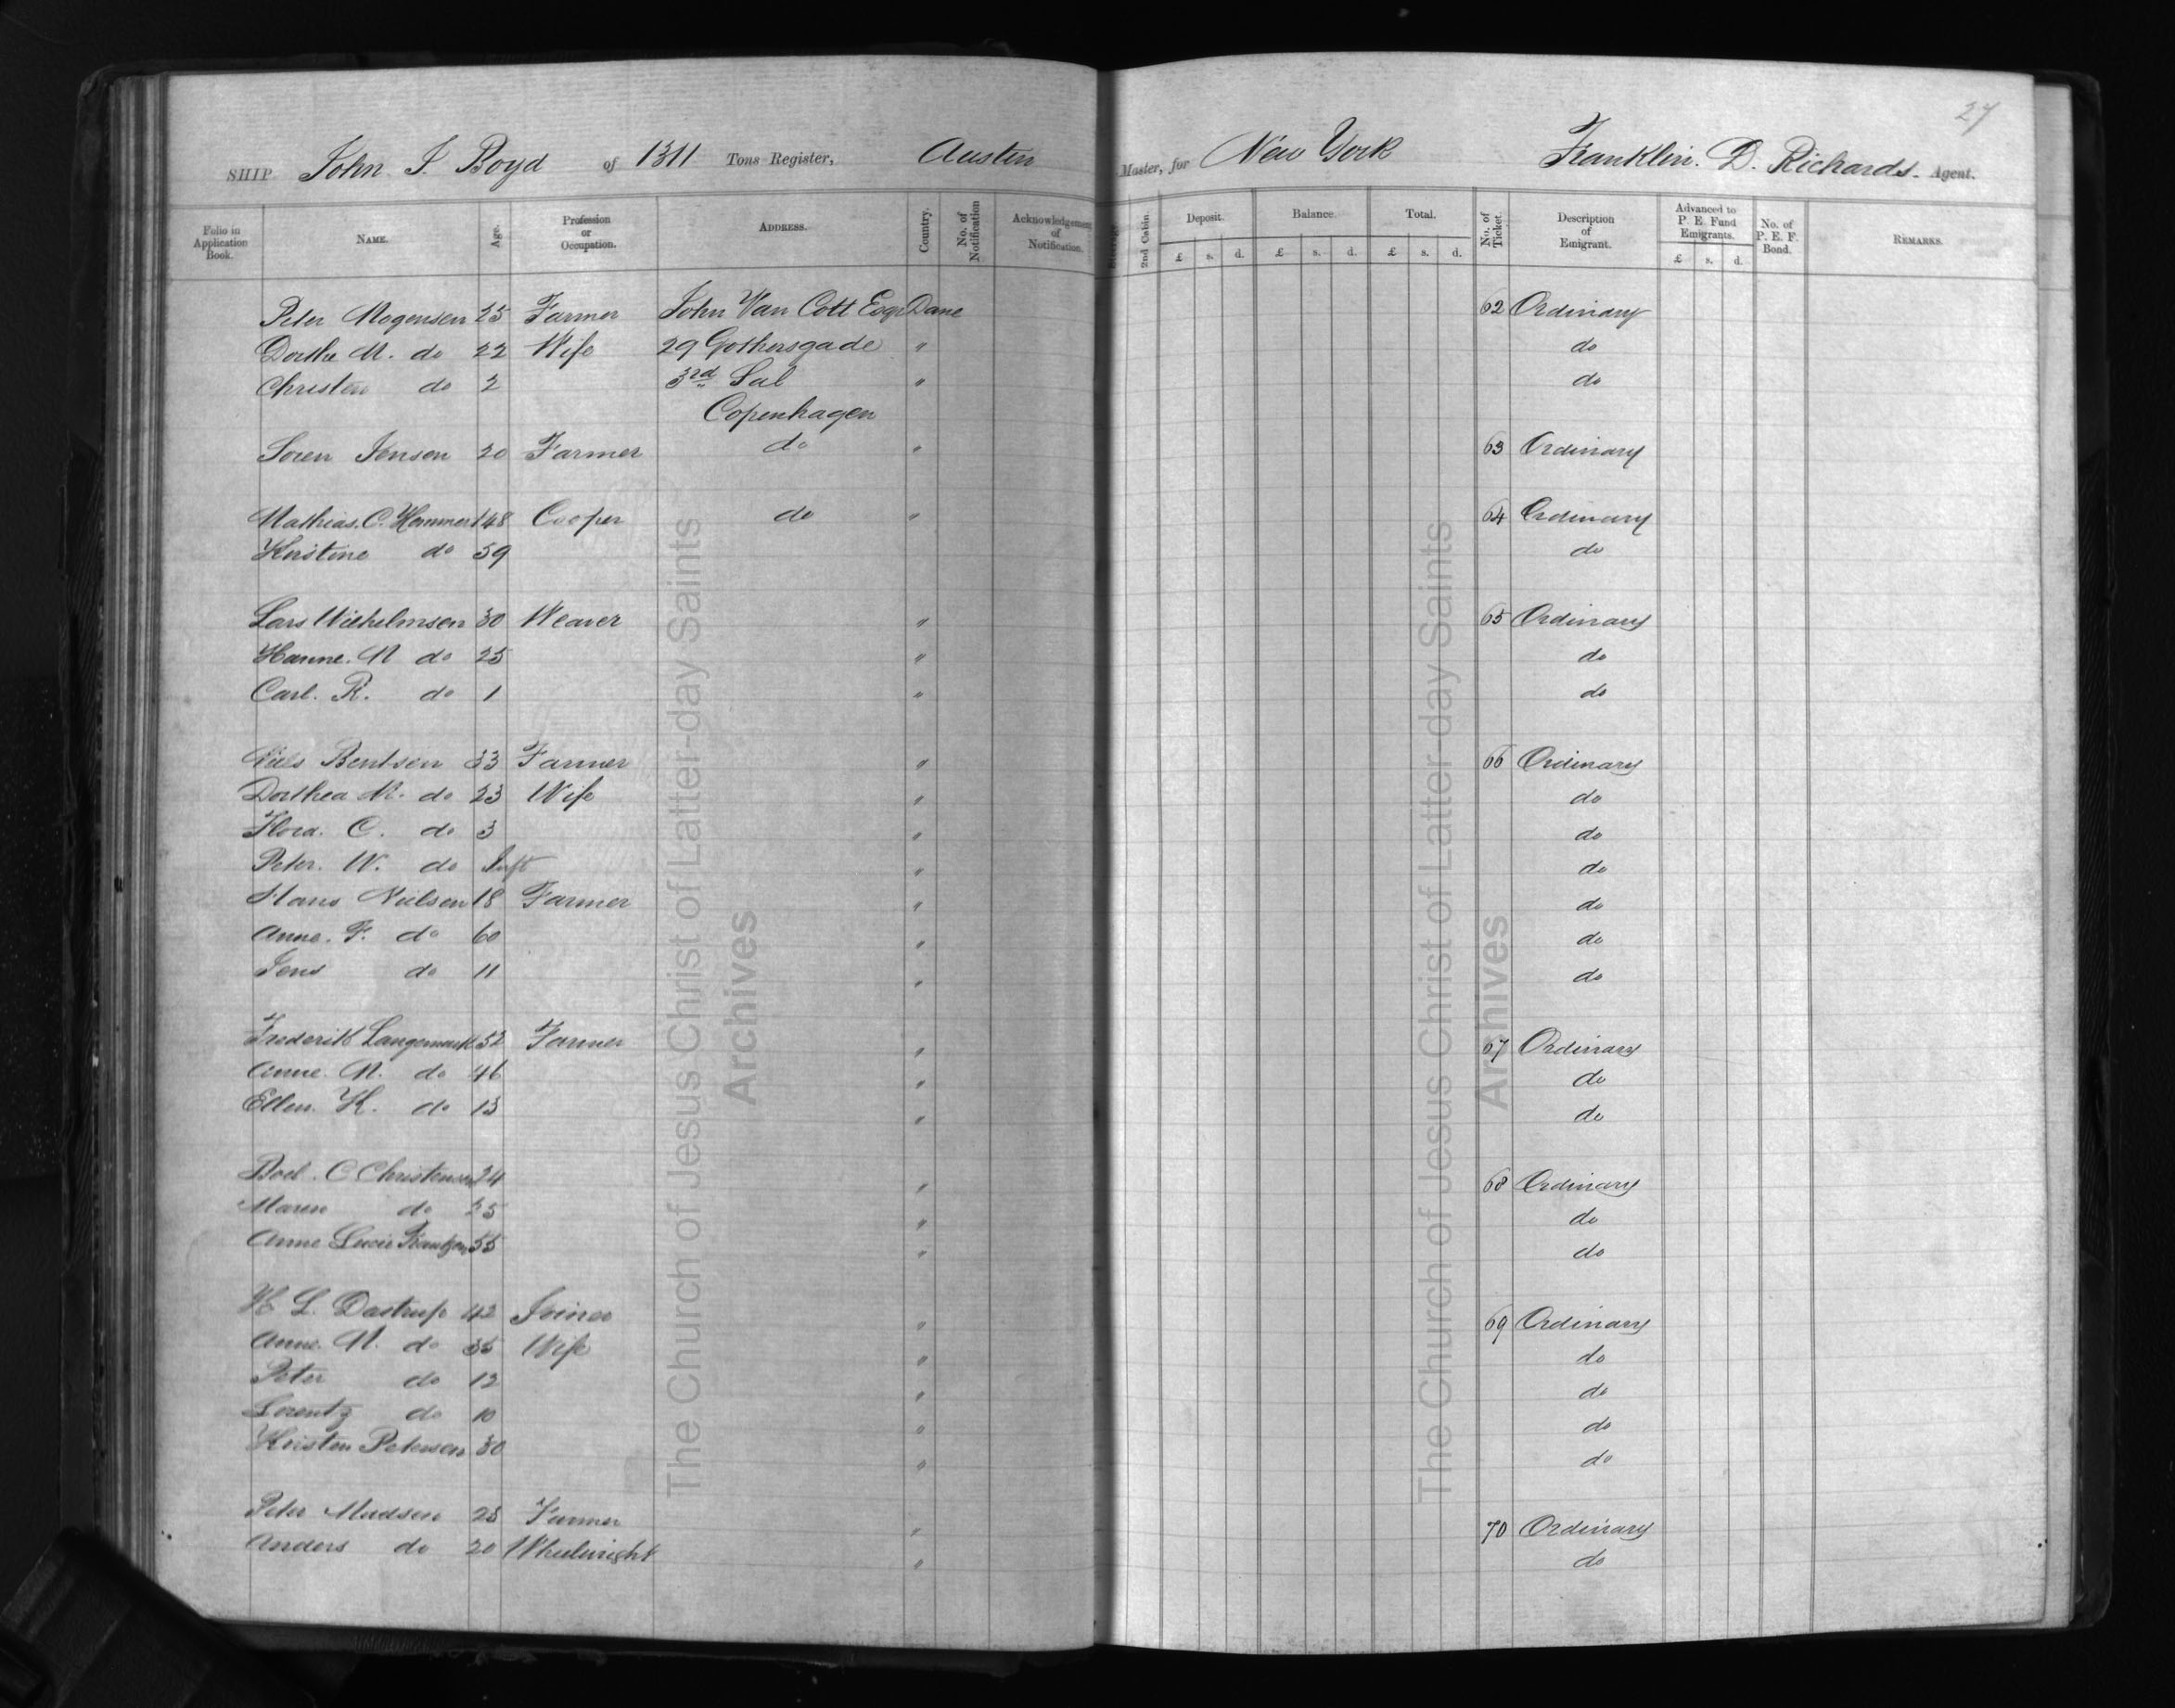 27
SHIP John J. Boyd of 1311 Tons Register, Austin Master, for New York Franklin. D. Richards. Agent.
Folio in Application Book. NAME. Age. Profession or Occupation. ADDRESS. Country. No. of Notification Acknowledgement of Notification. 2nd Cabin. Deposit. £ s. d. Balance. £ s. d. Total. £ s. d. No. of Ticket. Description of Emigrant. Advanced to P. E. Fund Emigrants. £ s. d. No. of P. E. F. Bond. REMARKS.
Peter Mogensen 25 Farmer John Van Cott Esqr Dane 62 Ordinary
Dorthe M. do 22 Wife 29 Gothersgade " do
Christen do 2 3rd Sal " do
Copenhagen
Soren Jensen 20 Farmer do " 63 Ordinary
Mathias. C. Hemmert 48 Cooper do " 64 Ordinary
Kirstine do 59 do
Lars Wilhelmsen 30 Weaver " 65 Ordinary
Hanne. M do 25 " do
Carl. R. do 1 " do
Niels Bentsen 33 Farmer " 66 Ordinary
Dorthea M. do 23 Wife " do
Flora. C. do 3 " do
Peter. W. do Inft " do
Hans Nielsen 18 Farmer " do
Anne. F. do 60 " do
Jens do 11 " do
Frederik Langemark 52 Farmer " 67 Ordinary
Anne. M. do 46 " do
Ellen. K. do 13 " do
Boel. C Christensen 24 " 68 Ordinary
Maren do 25 " do
Anne Lucie 55 " do
H L. Dastrup 42 Joiner " 69 Ordinary
Anne. M. do 35 Wife " do
Peter do 12 " do
Lorentz do 10 " do
Kristen Petersen 30 " do
Peter Madsen 25 Farmer " 70 Ordinary
Anders do 20 Wheelwright " do
The Church of Jesus Christ of Latter-day Saints
Archives
The Church of Jesus Christ of Latter-day Saints
Archives